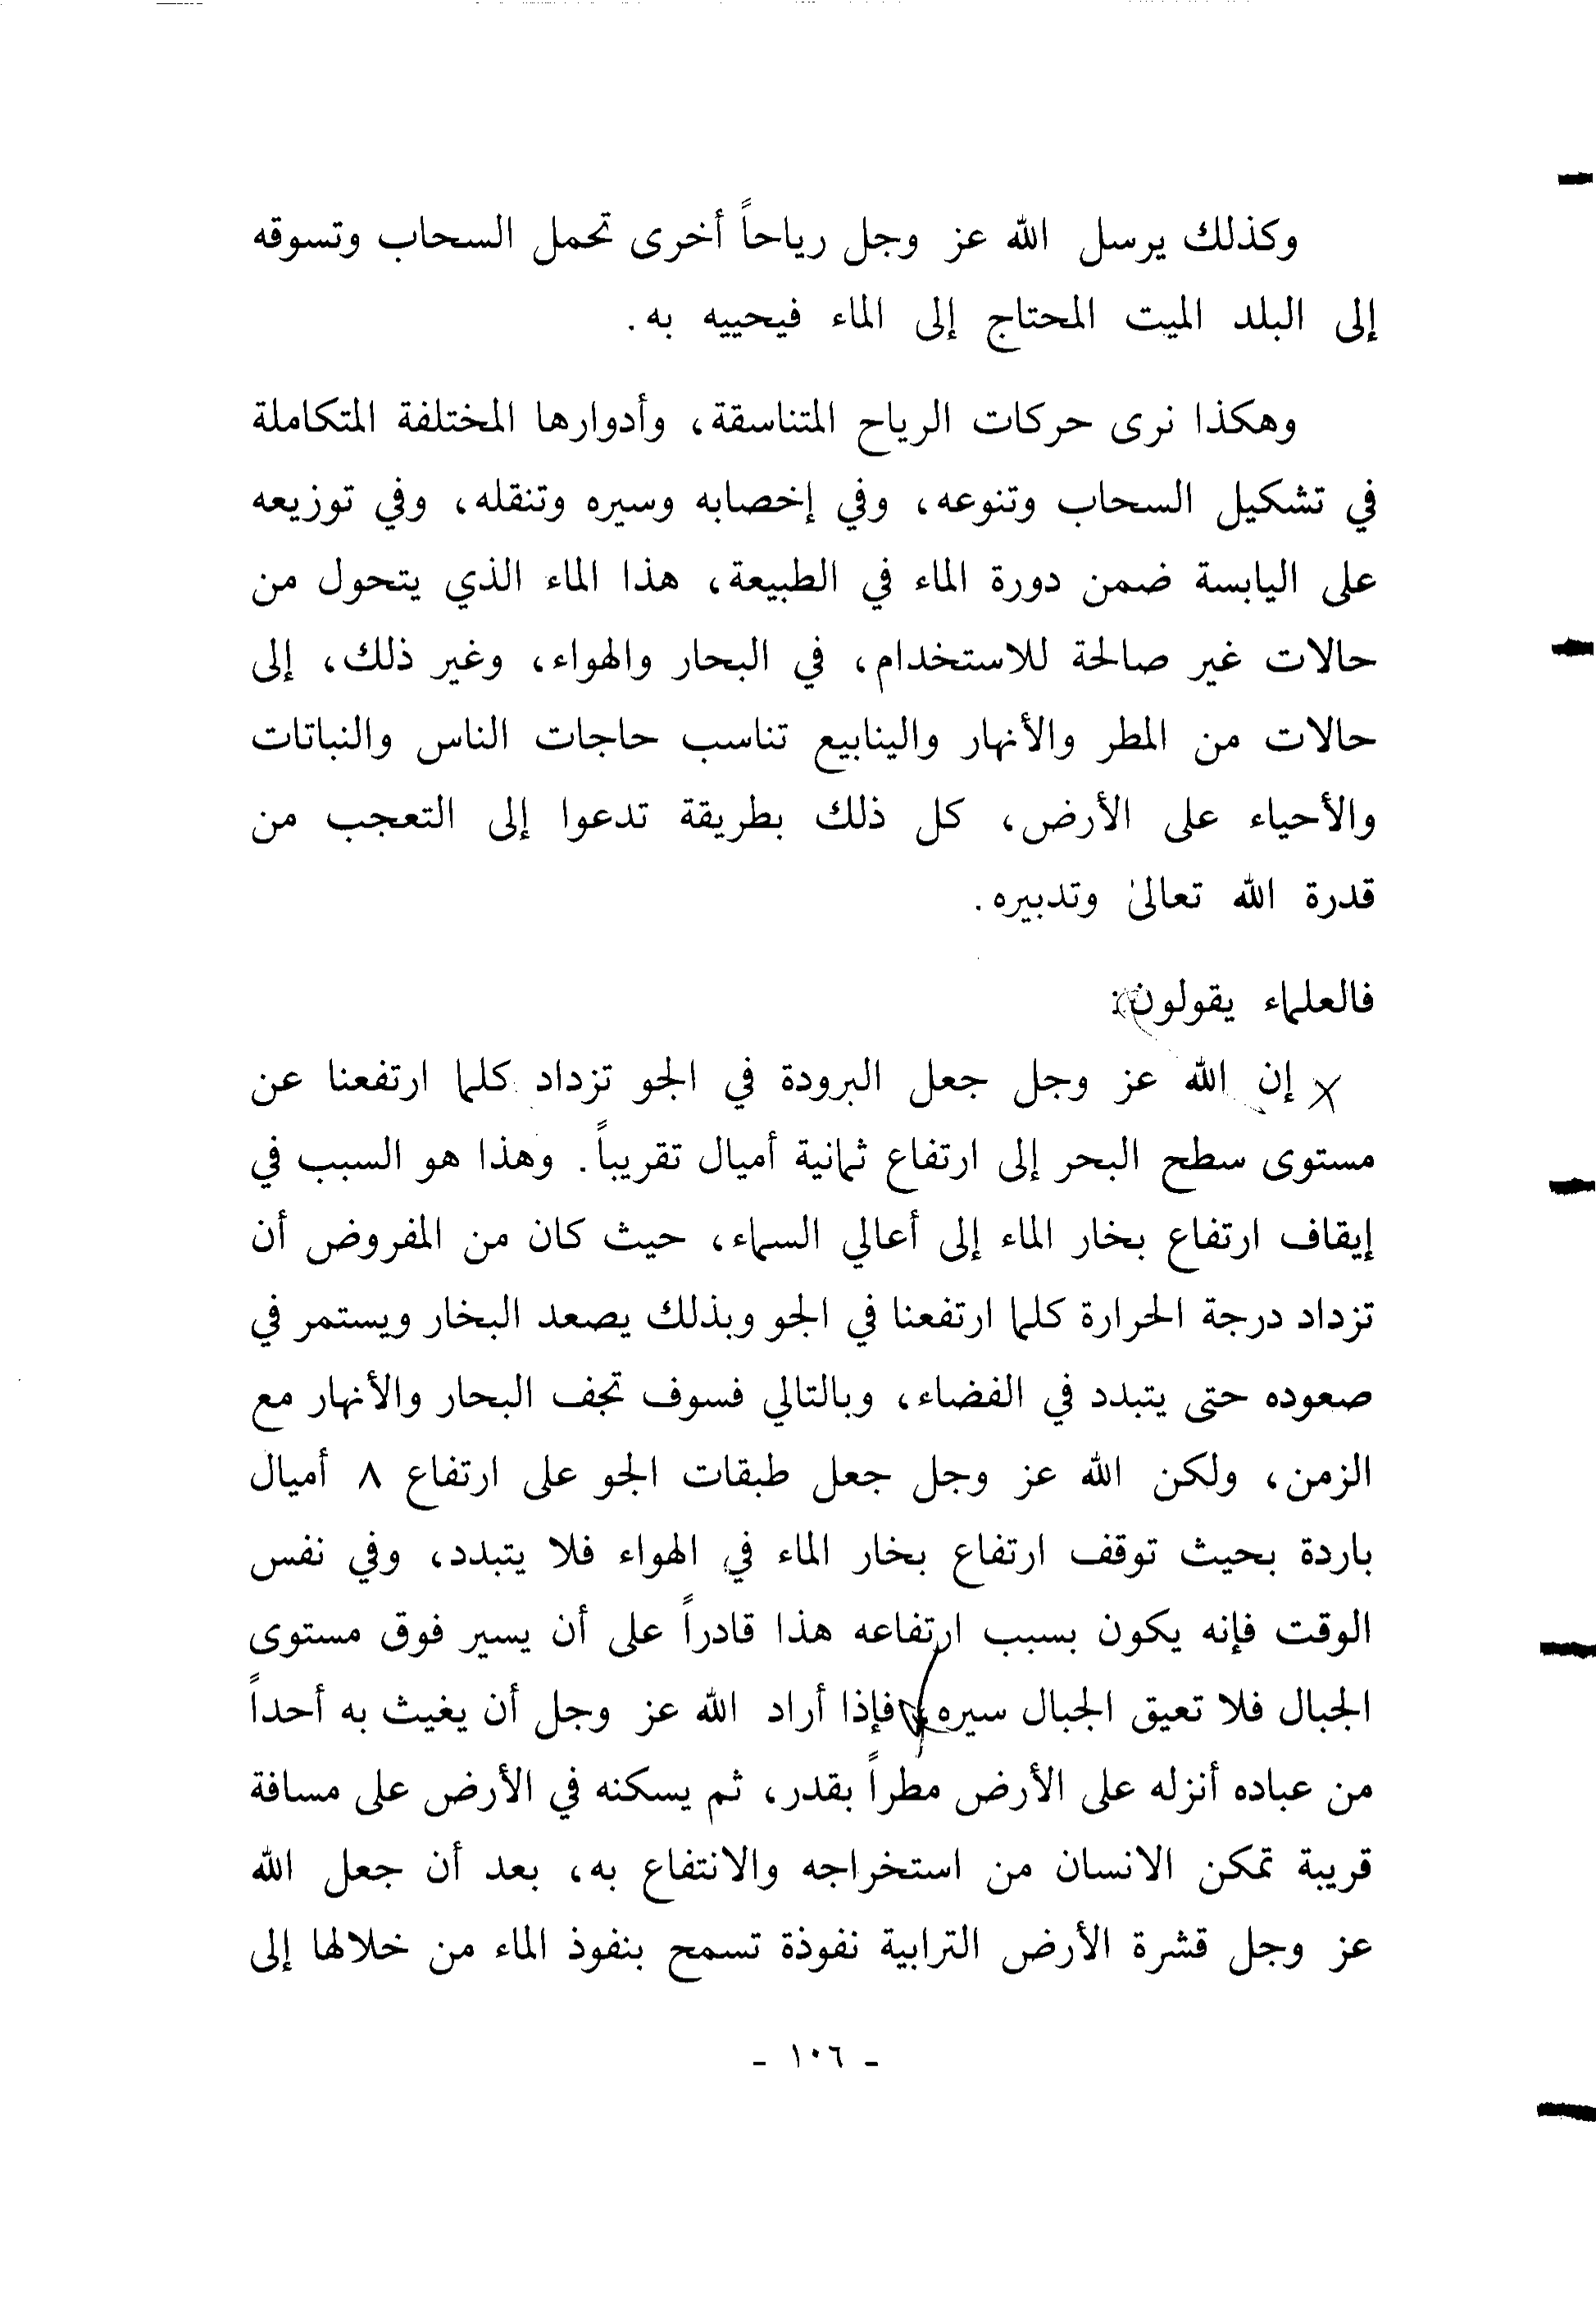 وكذلك يرسل الله عز وجل رياحاً أخرى تحمل السحاب وتسوقه
إلى البلد الميت المحتاج إلى الماء فيحييه به .
وهكذا نرى حركات الرياح المتناسقة، وأدوارها المختلفة المتكاملة
في تشكيل السحاب وتنوعه، وفي إخصابه وسيره وتنقله، وفي توزيعه
على اليابسة ضمن دورة الماء في الطبيعة، هذا الماء الذي يتحول من
حالات غير صالحة للاستخدام، في البحار والهواء، وغير ذلك، إلى
حالات من المطر والأنهار والينابيع تناسب حاجات الناس والنباتات
والأحياء على الأرض، كل ذلك بطريقة تدعوا إلى التعجب من
قدرة الله تعالىٰ وتدبيره .
فالعلماء يقولون:
إن الله عز وجل جعل البرودة في الجو تزداد كلما ارتفعنا عن
مستوى سطح البحر إلى ارتفاع ثمانية أميال تقريباً . وهذا هو السبب في
إيقاف ارتفاع بخار الماء إلى أعالي السماء، حيث كان من المفروض أن
تزداد درجة الحرارة كلما ارتفعنا في الجو وبذلك يصعد البخار ويستمر في
صعوده حتى يتبدد في الفضاء، وبالتالي فسوف تجف البحار والأنهار مع
الزمن، ولكن الله عز وجل جعل طبقات الجو على ارتفاع ٨ أميال
باردة بحيث توقف ارتفاع بخار الماء في الهواء فلا يتبدد، وفي نفس
الوقت فإنه يكون بسبب ارتفاعه هذا قادراً على أن يسير فوق مستوى
الجبال فلا تعيق الجبال سيره فإذا أراد الله عز وجل أن يغيث به أحداً
من عباده أنزله على الأرض مطراً بقدر، ثم يسكنه في الأرض على مسافة
قريبة تمكن الانسان من استخراجه والانتفاع به، بعد أن جعل الله
عز وجل قشرة الأرض الترابية نفوذة تسمح بنفوذ الماء من خلالها إلى
- ١٠٦ -